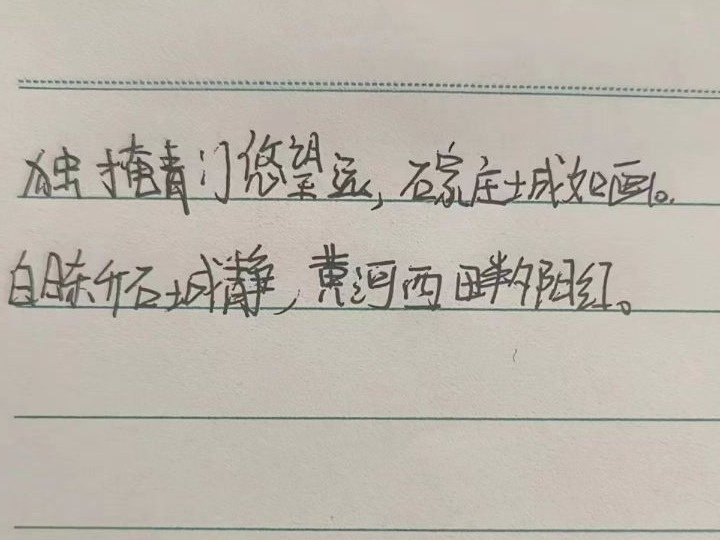 独掩青门悠望远,石家庄城如画。
白日东升石城静,黄河西畔夕阳红。